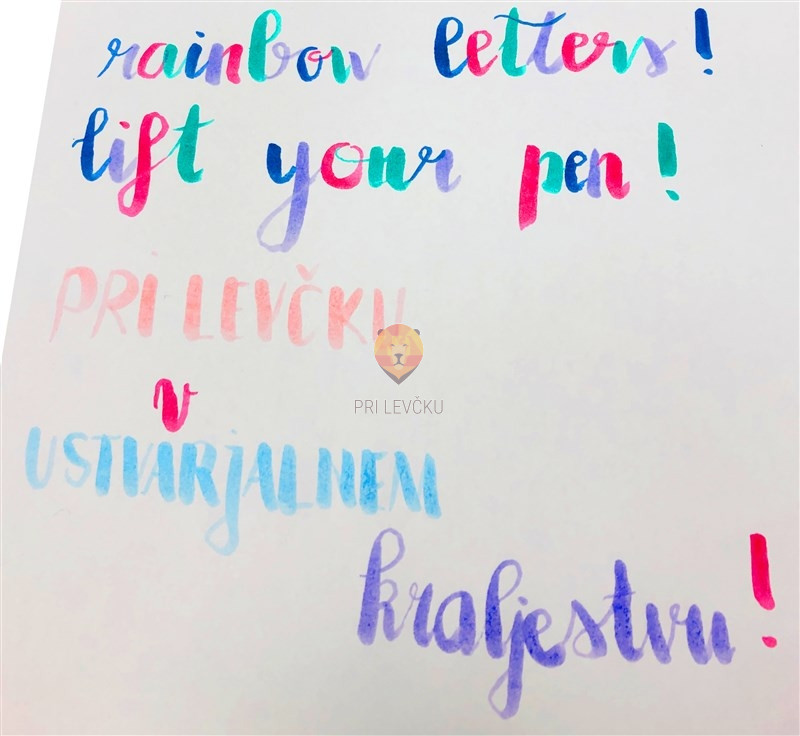 rainbow letters!
lift your pen!
PRI LEVČKU
PRI LEVČKU
v
USTVARjALNEM
kraljestvu!